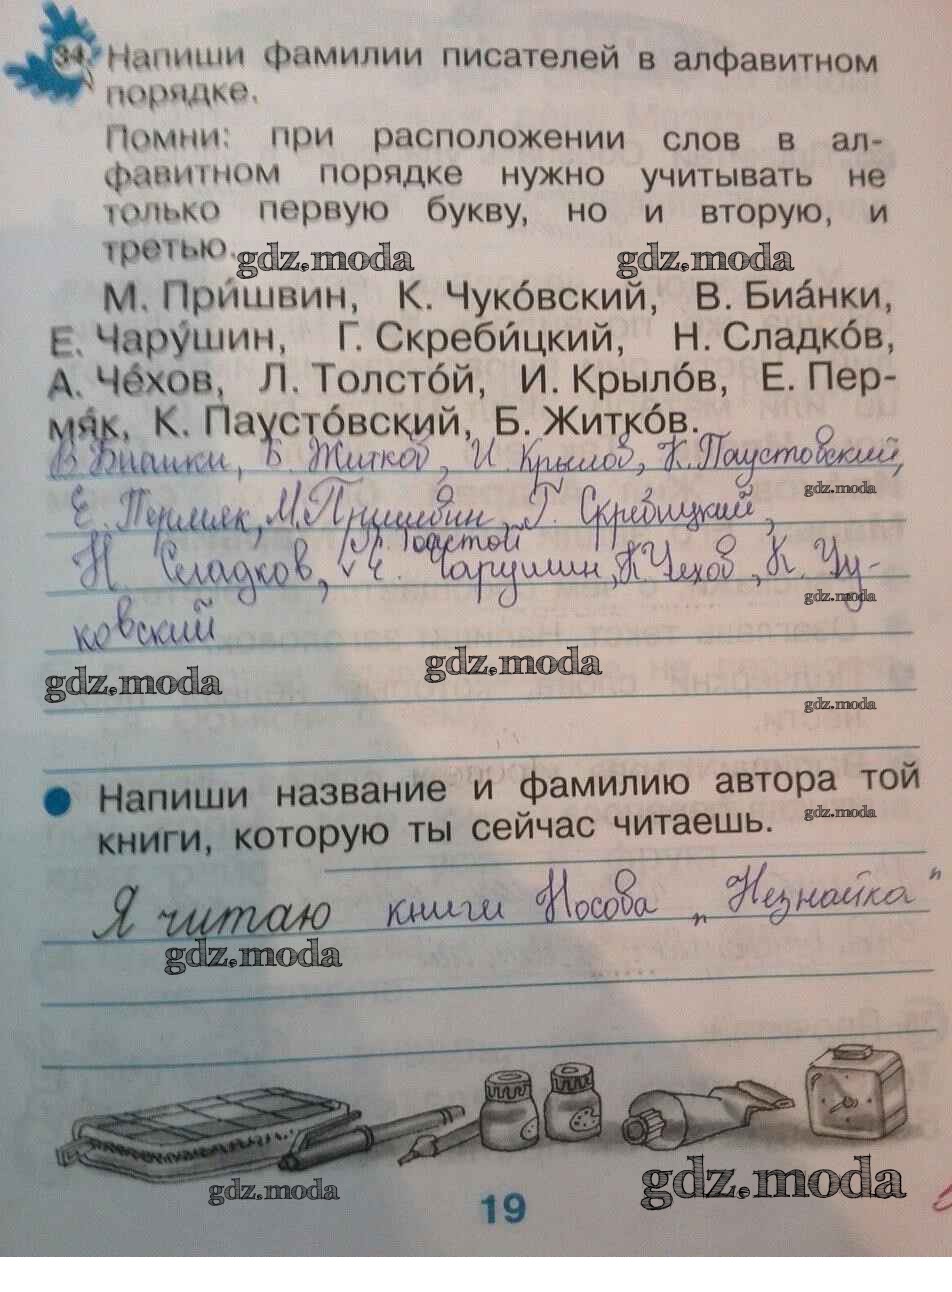 34. Напиши фамилии писателей в алфавитном
порядке.
Помни: при расположении слов в ал-
фавитном порядке нужно учитывать не
только первую букву, но и вторую, и
третью.
gdz.moda gdz.moda
М. При́швин, К. Чуко́вский, В. Биа́нки,
Е. Чару́шин, Г. Скреби́цкий, Н. Сладко́в,
А. Че́хов, Л. Толсто́й, И. Крыло́в, Е. Пер-
мя́к, К. Паусто́вский, Б. Житко́в.
В. Бианки, Б. Житков, И. Крылов, К. Паустовский,
gdz.moda
Е. Пермяк, М. Пришвин, Г. Скребицкий,
Л. Толстой
Н. Сладков, Е. Чарушин, К Чехов, К. Чу-
gdz.moda
ковский
gdz.moda gdz.moda
gdz.moda
Напиши название и фамилию автора той
книги, которую ты сейчас читаешь.
gdz.moda
Я читаю книги Носова „Незнайка"
gdz.moda
gdz.moda gdz.moda
19